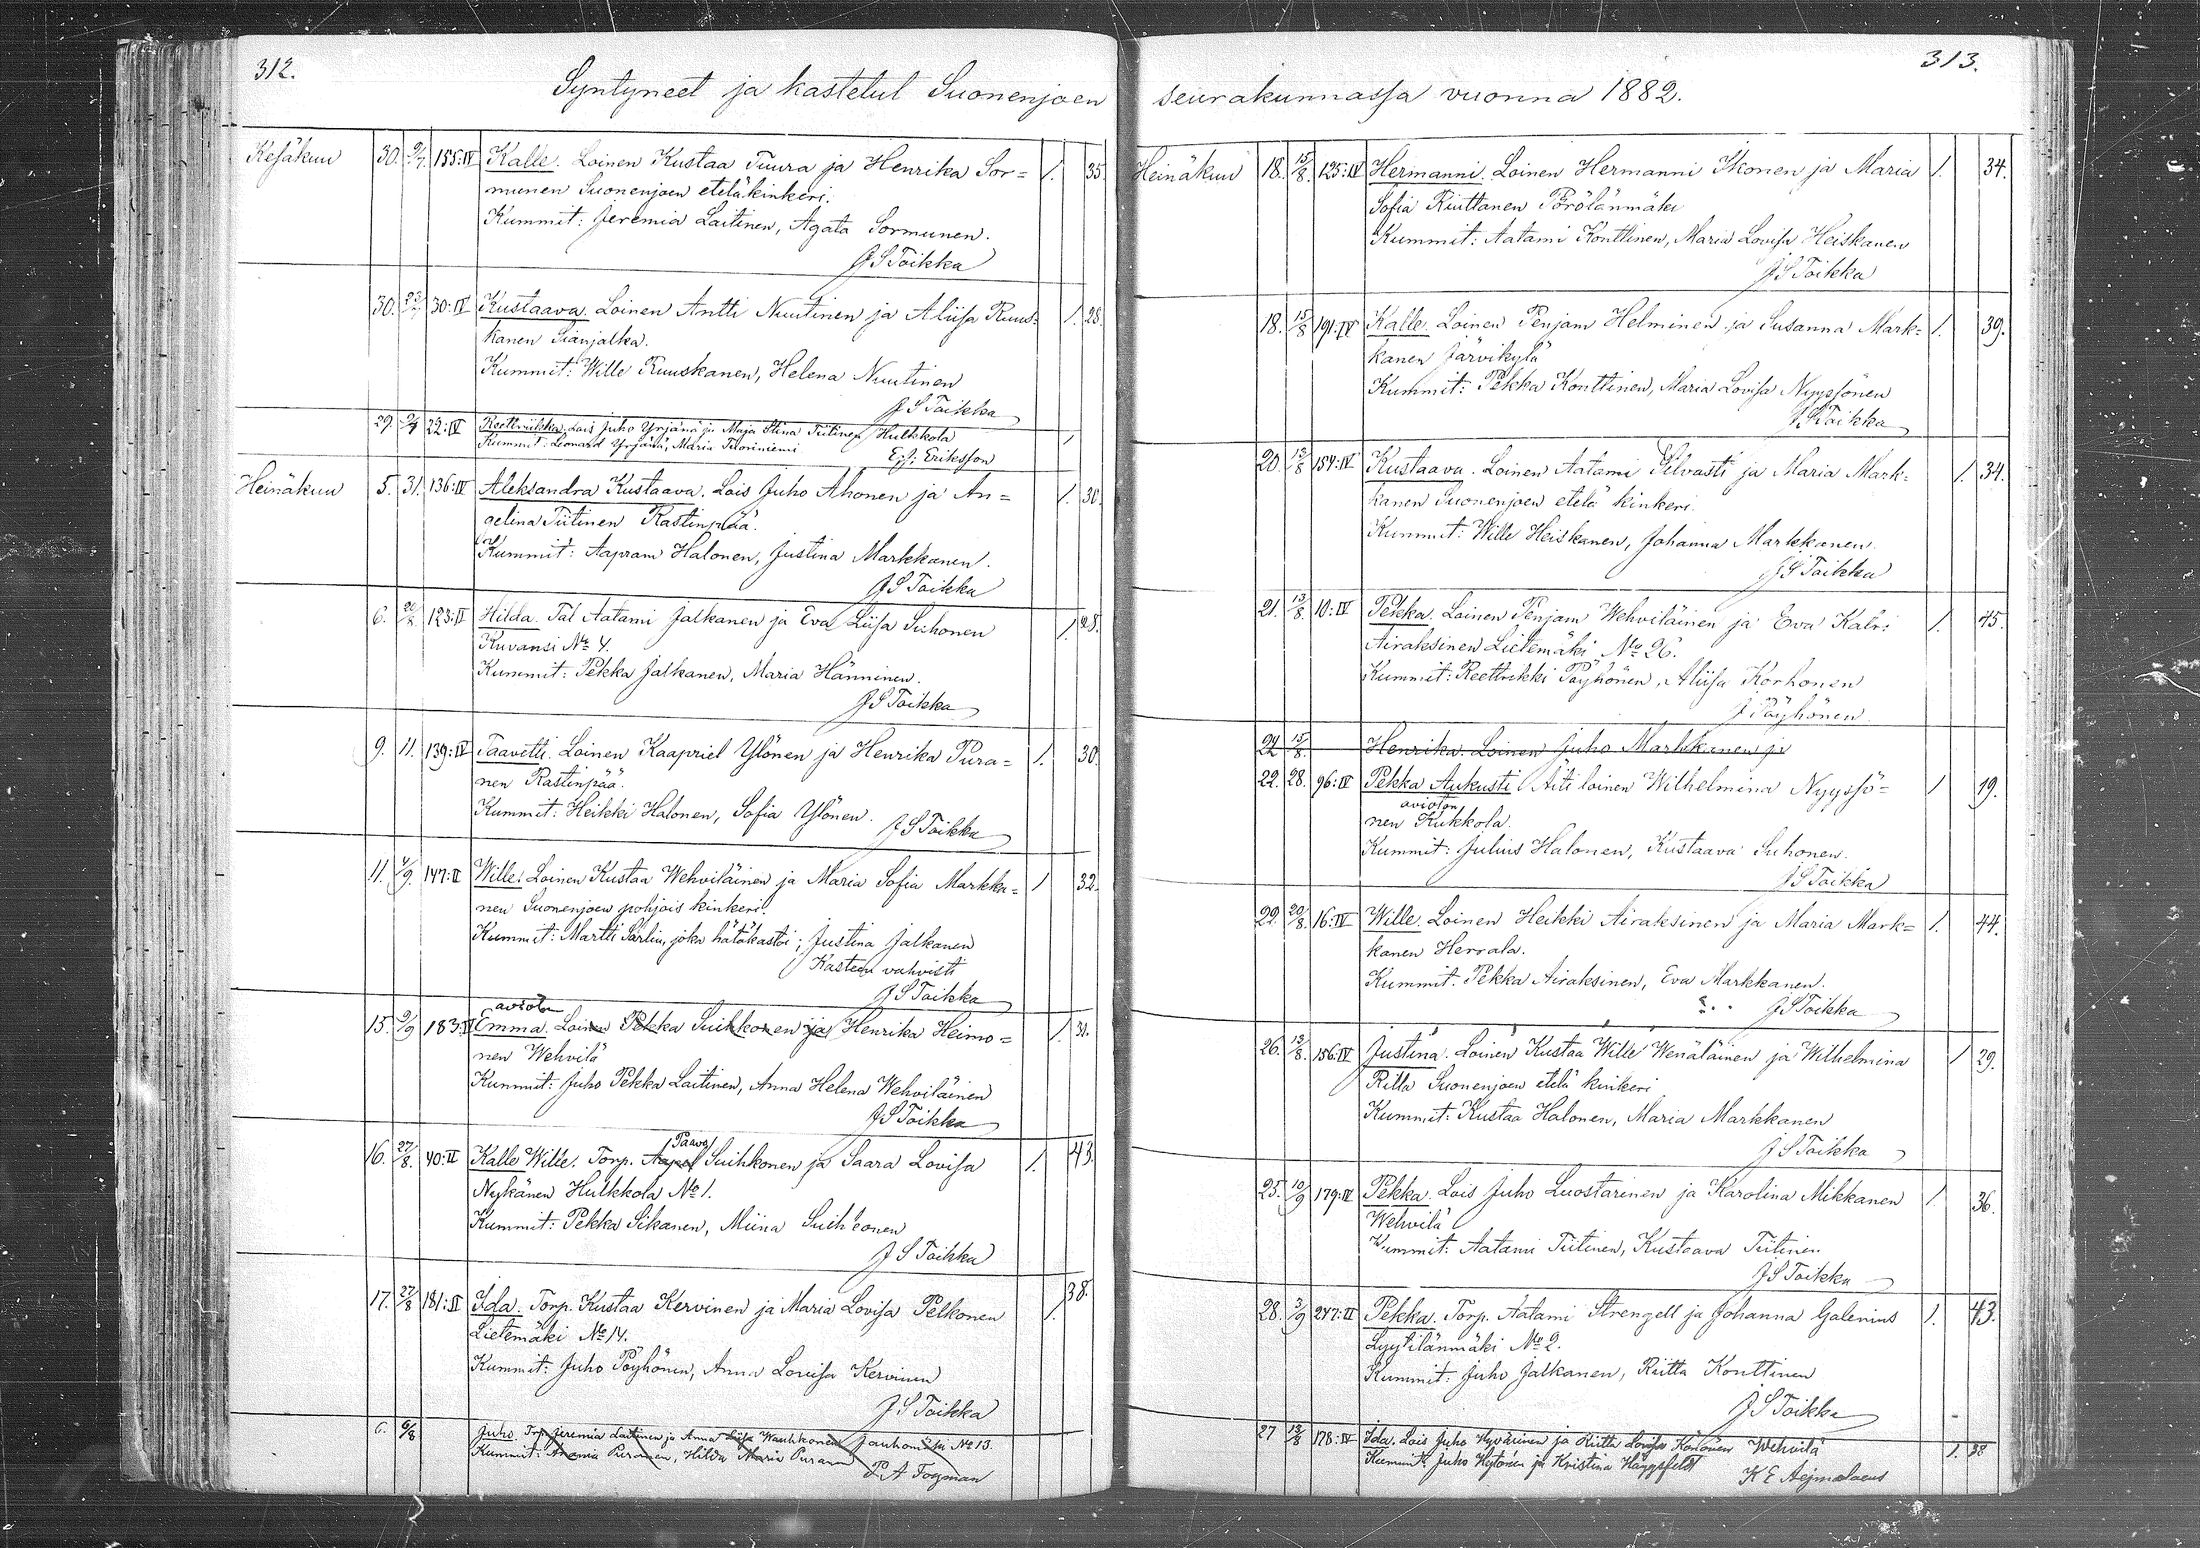 312.
Syntyneet ja kastetut Suonenjoen
Kesäkuu 30. 9/7. 155:IV Kalle. Loinen Kustaa Tuura ja Henrika Sor= 1. 35.
munen Suonenjoen eteläkinkeri.
Kummit: Jeremia Laitinen, Agata Sormunen.
J S Toikka
30. 23/7 30:IV Kustaava. Loinen Antti Nuutinen ja Aliisa Ruus= 1. 28.
kanen Sianjalka.
Kummit: Wille Ruuskanen, Helena Nuutinen
J S Toikka
29 22:IV Lois Juho Yrjänä ja Maja Stina Tiitinen Hulkkola 1
Kummit: Leonard Yrjänä, Maria
Eriksson
Heinäkuu 5. 31. 136:IV Aleksandra Kustaava. Lois Juho Ahonen ja An= 1. 30.
gelina Tiitinen Rastinpää.
Kummit: Aapram Halonen, Justina Markkanen.
J S Toikka
6. 20/8. 123:II Hilda. Tal Aatami Jalkanen ja Eva Liisa Suhonen 1. 28.
Kuvansi No 4.
Kummit: Pekka Jalkanen, Maria Hänninen.
J S Toikka
9. 11. 139:IV Taavetti. Loinen Kaapriel Ylönen ja Henrika Pura= 1. 30.
nen Rastinpää.
Kummit: Heikki Halonen, Sofia Ylönen.
J S Toikka
11. 147:II Wille. Loinen Kustaa Wehviläinen ja Maria Sofia Markka= 1 32.
nen Suonenjoen pohjois kinkeri.
Kummit: Martti Särlin, joka hätäkastoi; Justina Jalkanen
Kasteen vahvisti
J S Toikka
avioton
15. 3/9 183: Emma. Loinen Pekka Suihkonen ja Henrika Heimo= 1. 31.
nen Wehvilä
Kummit: Juho Pekka Laitinen, Anna Helena Wehviläinen
J S Toikka
Paavo
16. 27/8. 40:II Kalle Wille. Torp. Aapel Suihkonen ja Saara Lovisa 1. 43.
Nykänen Hulkkola No 1.
Kummit: Pekka Sikanen, Miina Suihkonen
J S Toikka
17. 27/8 181:II Ida. Torp. Kustaa Kervinen ja Maria Lovisa Pelkonen 1. 38.
Lietemäki No 14.
Kummit: Juho Pöyhönen, Anna Lovisa Kervinen
J S Toikka
6. 6/8 Juho Trp Jeremia Laitinen ja Anna Liisa Wauhkonen Jauhomäki No 13.
Kummit: Anania Puranen, Hilda Maria Puranen
P A Fogman
313.
seurakunnassa vuonna 1882.
Heinäkuu 18. 15/8. 125:IV Hermanni. Loinen Hermanni Ikonen ja Maria 1. 34.
Sofia Riuttanen Pörölänmäki
Kummit: Aatami Konttinen, Maria Lovisa Heiskanen
J S Toikka
18. 15/8 191:IV Kalle. Loinen Penjam Helminen ja Susanna Mark= 1. 39.
kanen Järvikylä
Kummit: Pekka Konttinen, Maria Lovisa Nyyssönen
J S Toikka
20. 13/8 154:IV Kustaava. Loinen Aatami Silvasti ja Maria Mark= 1. 34.
kanen Suonenjoen etelä kinkeri.
Kummit: Wille Heiskanen, Johanna Markkanen.
J S Toikka
21. 13/8 10:IV Pekka. Loinen Penjam Wehviläinen ja Eva Katri 1. 45.
Airaksinen Lietemäki No 26.
Kummit: Reettrikki Pöyhönen, Aliisa Korhonen
J Pöyhönen
22 15/8. Henrika. Loinen Juho Markkanen ja
22. 28. 96:IV Pekka Aukusti Äiti loinen Wilhelmina Nyyssö= 1 19.
avioton
nen Kukkola.
Kummit: Julius Halonen, Kustaava Suhonen.
J S Toikka
22. 20/8. 16:IV Wille. Loinen Heikki Airaksinen ja Maria Mark= 1. 44.
kanen Herrala.
Kummit: Pekka Airaksinen, Eva Markkanen.
J S Toikka
26. 13/8. 156:IV Justina. Loinen Kustaa Wille Wenäläinen ja Wilhelmina 1 29.
Ritta Suonenjoen etelä kinkeri
Kummit: Kustaa Halonen, Maria Markkanen
J S Toikka
25. 10/9 179:IV Pekka. Lois Juho Luostarinen ja Karolina Mikkanen 1. 36.
Wehvilä
Kummit: Aatami Tiitinen, Kustaava Tiitinen
J S Toikka
28. 3/9 247:II Pekka. Torp. Aatami Strengell ja Johanna Galenius 1. 43.
Lyytilänmäki No 2.
Kummit: Juho Jalkanen, Riitta Konttinen
J S Toikka
27 13/8 178:IV Ida. Lois Juho Hyvärinen ja Riitta Lovisa Könönen Wehvilä 1. 38
Kummit: Juho Hytönen ja Kristina Häggsfeldt
K E Aejmelaeus